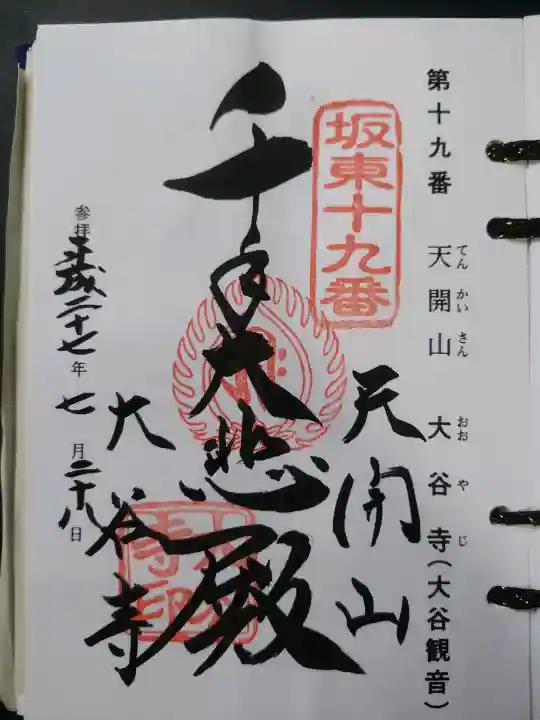 第十九番 天開山 大谷寺(大谷観音)
てんかいさん おおやじ
坂東十九番
天開山
千手大悲殿
大谷寺
参拝 平成二十七年 七月二十八日